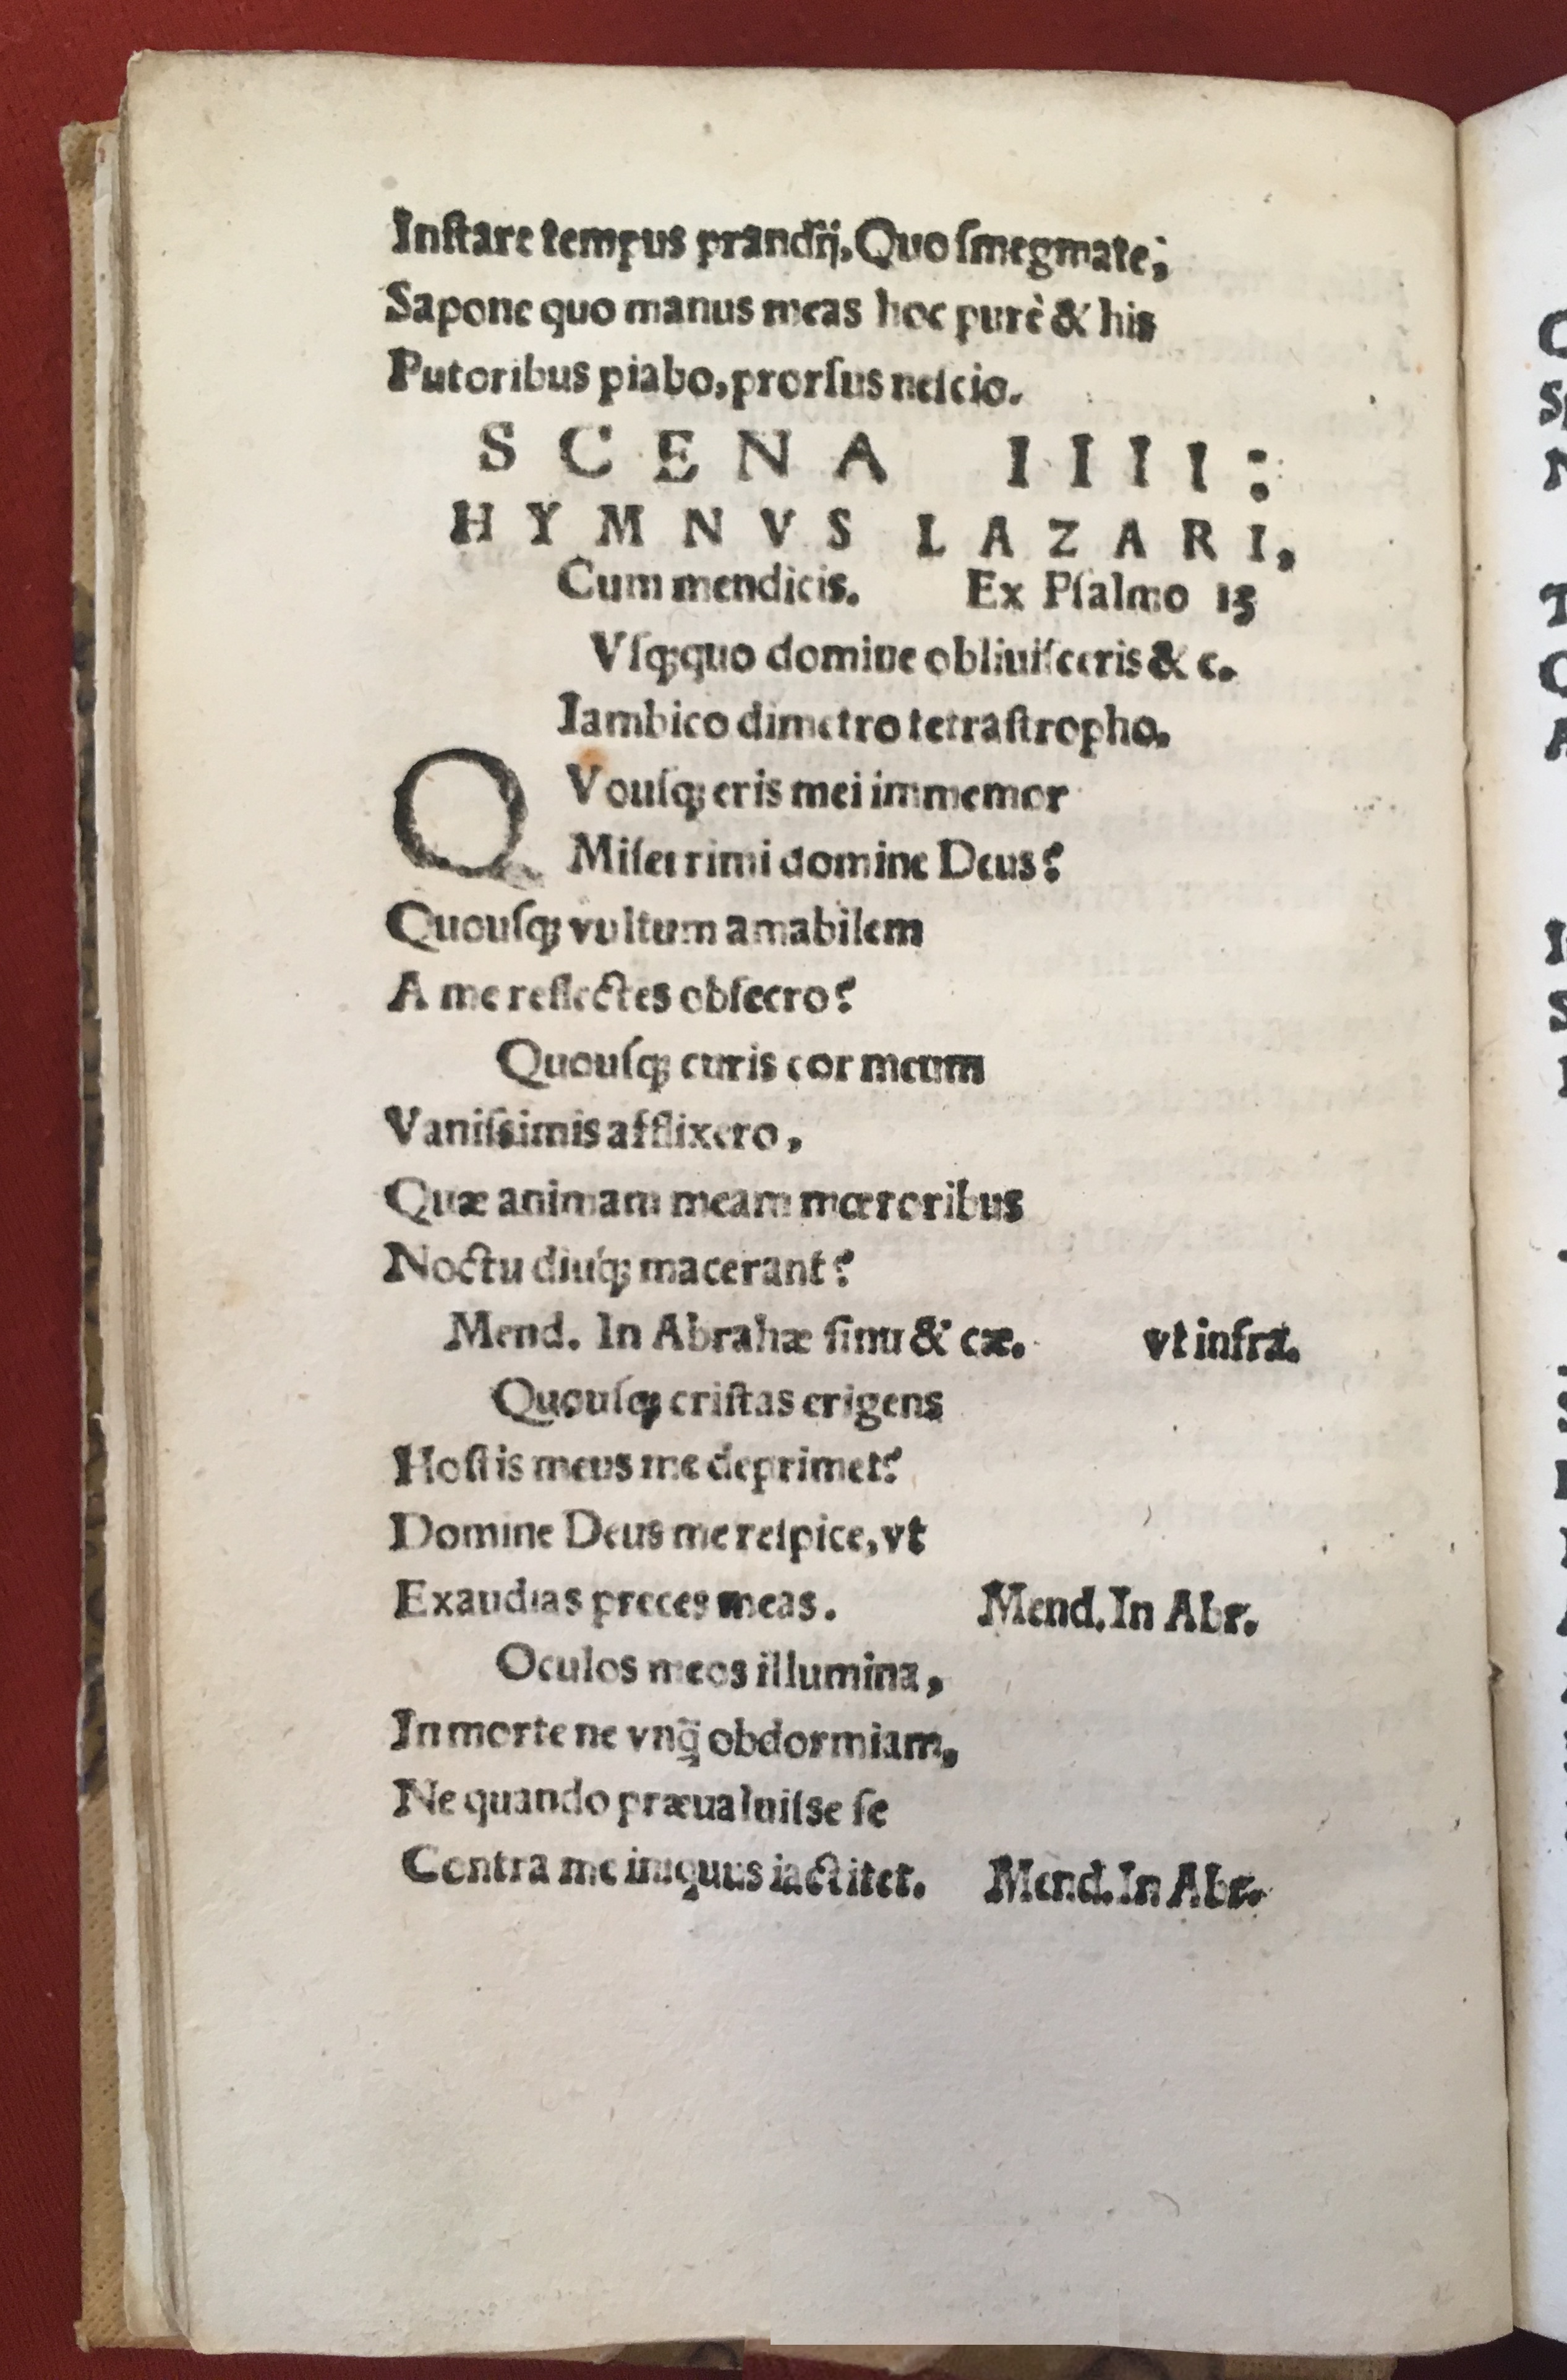 Inſtare tempus prandij. Quo ſmegmate,
Sapone quo manus meas hoc purè & his
Putoribus piabo, prorſus neſcio.
SCENA IIII:
HYMNVS LAZARI,
Cum mendicis. Ex Pſalmo 15
Vſq;quo domine obliuiſceris & c.
Iambico dimetro tetraſtropho.
QVouſq; eris mei immemor
Miſerrimi domine Deus?
Quouſq; vultum amabilem
A me reflectes obſecro?
Quouſq; curis cor meum
Vaniſsimis afflixero,
Quæ animam meam mœroribus
Noctu diuq́; macerant?
Mend. In Abrahæ ſinu & cæ. vt infra.
Quouſq; criſtas erigens
Hoſtis meus me deprimet?
Domine Deus me reſpice, vt
Exaudias preces meas. Mend. In Abr.
Oculos meos illumina,
In morte ne vnq̃ obdormiam,
Ne quando præualuiſse ſe
Contra me iniquus iactitet. Mend. In Abr.